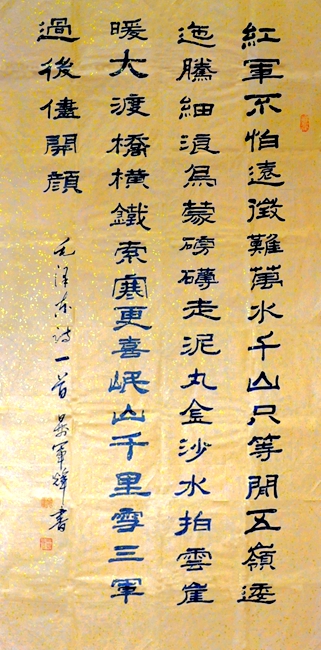 紅軍不怕遠徵難萬水千山只等閒五嶺逶
迤騰細浪烏蒙磅礴走泥丸金沙水拍雲崖
暖大渡橋橫鐵索寒更喜岷山千里雪三軍
過後儘開顏
毛泽东诗一首 軍輝書